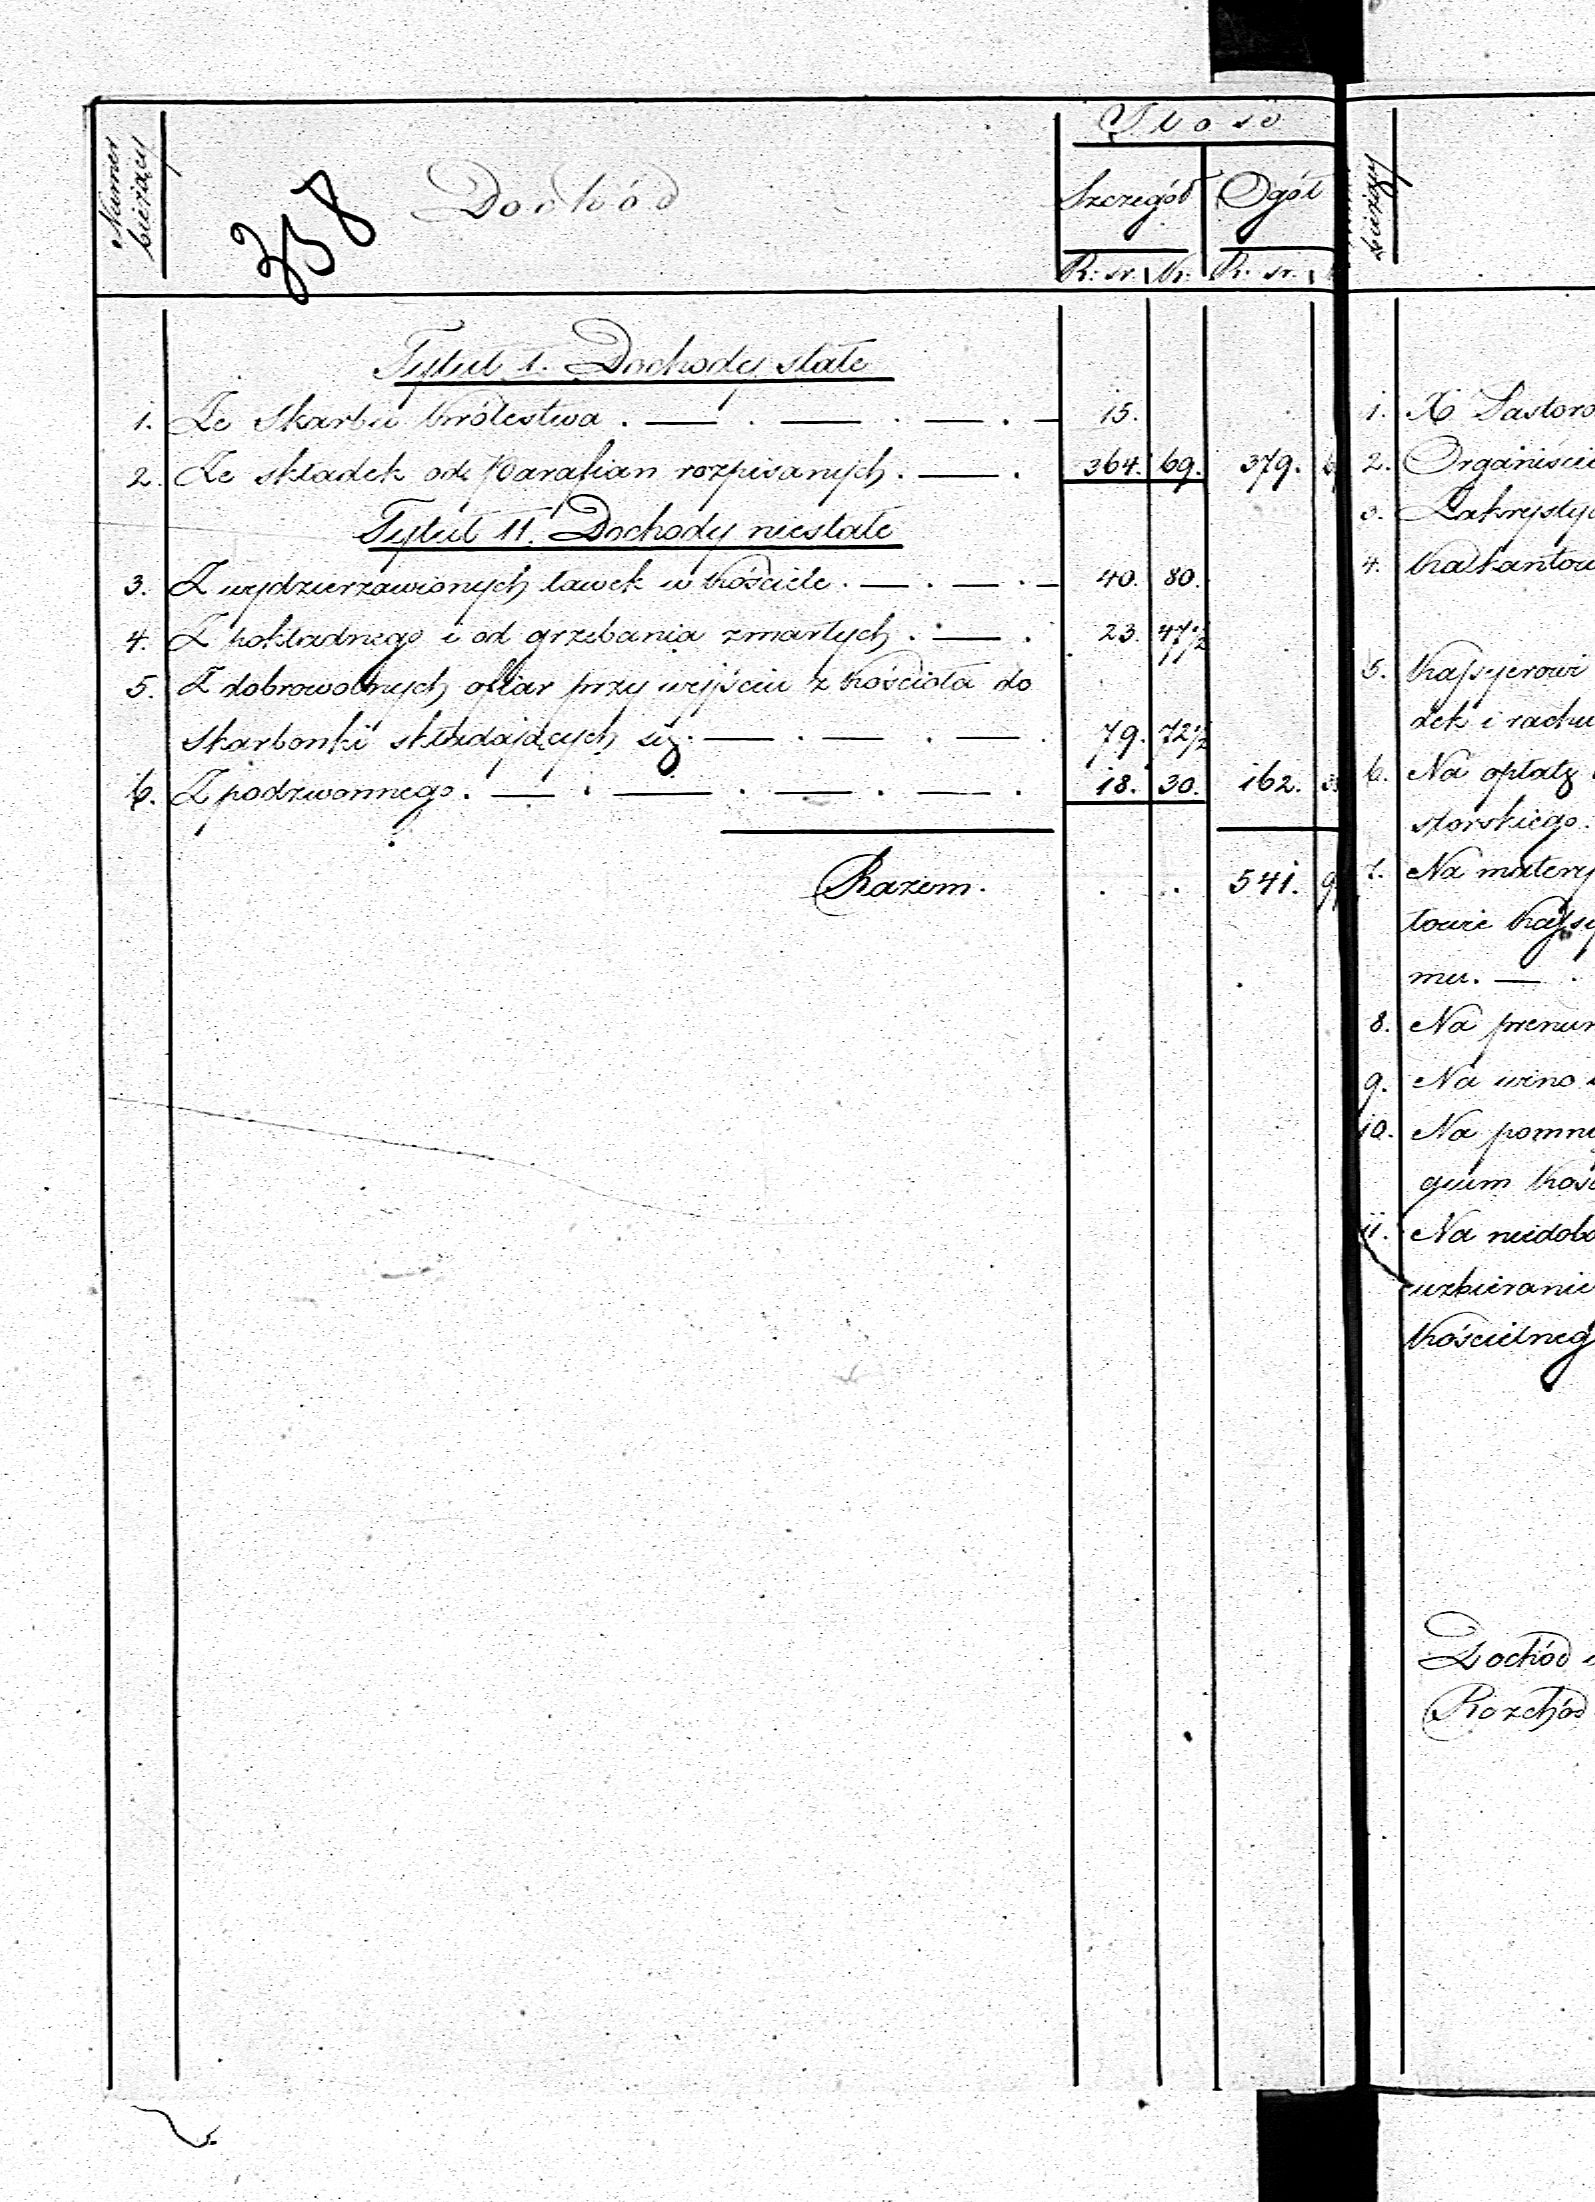 Numer bieżący
358
Dochód
Ilość
Szczegół Ogół
R: sr. K: R: sr.
Tytuł I. Dochody stałe
1. Ze Skarbu Królestwa . — . — . — . — 15.
2. Ze składek od Parafian rozpisanych . — . 364. 69. 379.
Tytuł II. Dochody niestałe
3. Z wydzierżawionych ławek w kościele . — . — . — 40. 80.
4. Z pokładnego i od grzebania zmarłych . — . 23. 47 1/2
5. Z dobrowolnych ofiar przy wyjściu z kościoła do
skarbonki składających się . — . — . — . 79. 72 1/2
6. Z podzwonnego . — . — . — . — . 18. 30. 162.
Razem . . . 541.
bieżący
1. X Pastoro
2. Organiście
3. Zakrysty
4. Kalkantow
5. Kassyerowi
dek i rachu
6. Na opłatę
storskiego.
7. Na matery
towie Kassy
mu. — .
8. Na prenum
9. Na wino
10. Na pomn
gium Kośc
11. Na niedobo
uzbieranie
Kościelneg
Dochód
Rozchód